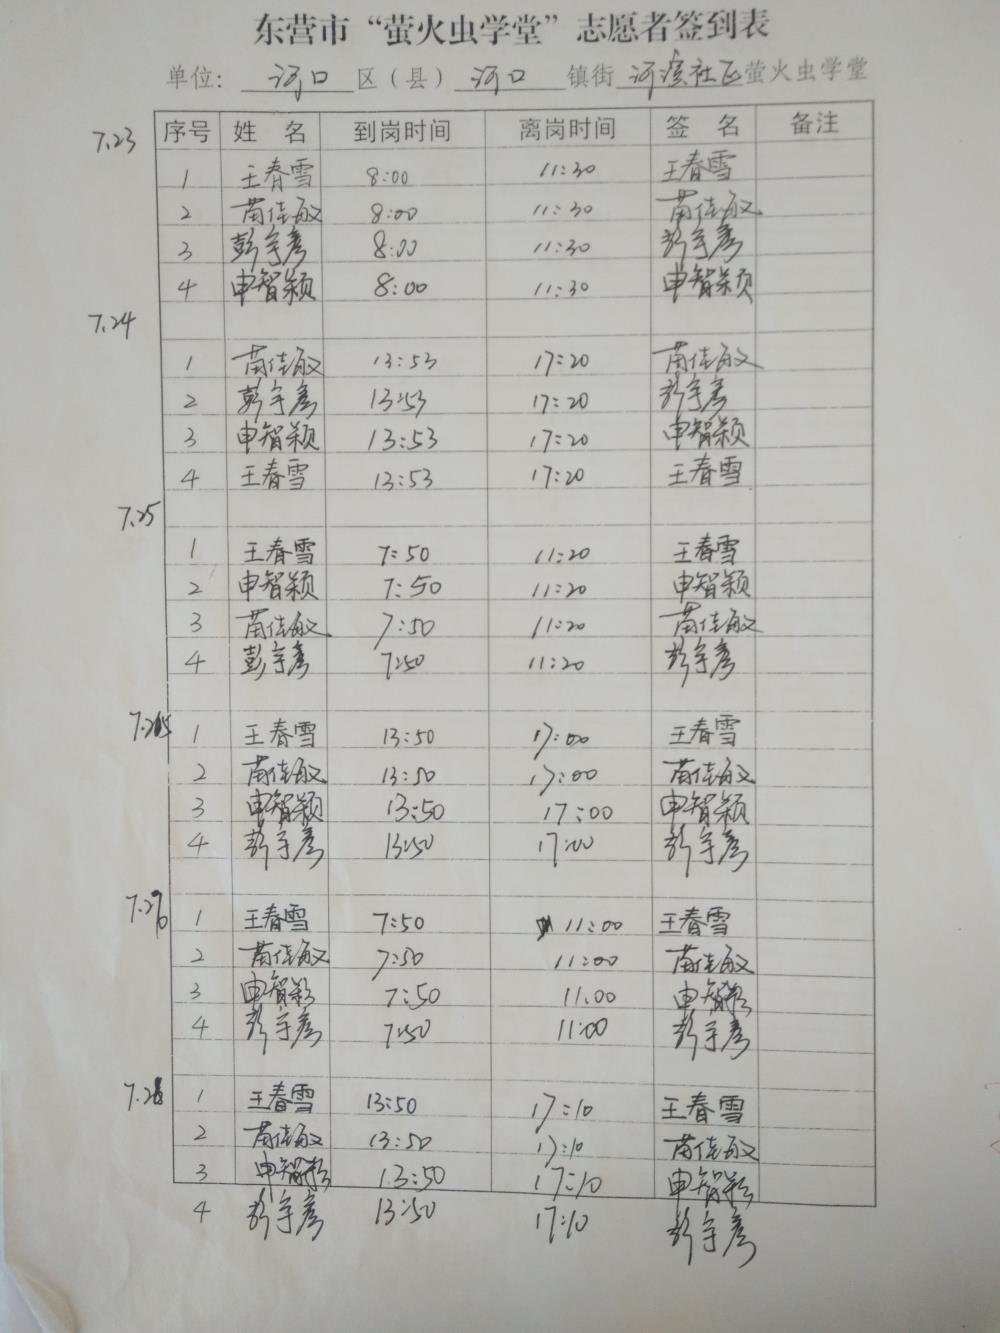 东营市“萤火虫学堂”志愿者签到表
单位: 河口 区(县) 河口 镇街 河滨社区 萤火虫学堂
序号 姓 名 到岗时间 离岗时间 签 名 备注
7.23
1 王春雪 8:00 11:30 王春雪
2 苗佳敏 8:00 11:30 苗佳敏
3 彭宇彦 8:00 11:30 彭宇彦
4 申智颖 8:00 11:30 申智颖
7.24
1 苗佳敏 13:53 17:20 苗佳敏
2 彭宇彦 13:53 17:20 彭宇彦
3 申智颖 13:53 17:20 申智颖
4 王春雪 13:53 17:20 王春雪
7.25
1 王春雪 7:50 11:20 王春雪
2 申智颖 7:50 11:20 申智颖
3 苗佳敏 7:50 11:20 苗佳敏
4 彭宇彦 7:50 11:20 彭宇彦
1 王春雪 13:50 17:00 王春雪
2 苗佳敏 13:50 17:00 苗佳敏
3 申智颖 13:50 17:00 申智颖
4 彭宇彦 13:50 17:00 彭宇彦
1 王春雪 7:50 11:00 王春雪
2 苗佳敏 7:50 11:00 苗佳敏
3 申智颖 7:50 11:00 申智颖
4 彭宇彦 7:50 11:00 彭宇彦
1 王春雪 13:50 17:10 王春雪
2 苗佳敏 13:50 17:10 苗佳敏
3 申智颖 13:50 17:10 申智颖
4 彭宇彦 13:50 17:10 彭宇彦